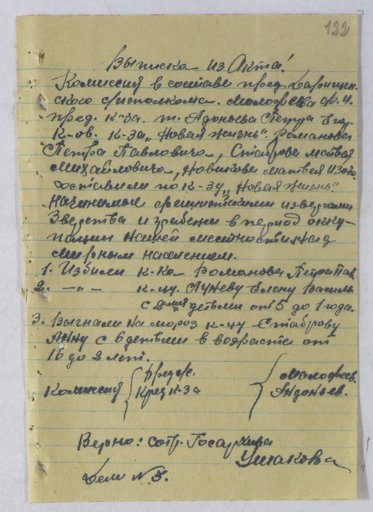 122
Выписка из Акта!
Комиссия в составе пред.
ского сполкома. Молофеева И. И.
пред. к-за. т. Адоньева Петра Влад.
к-ов. к-за „Новая жизнь". Романова
Петра Павловича, Стаброва Матвея
Михайловича, Новикова Матвея
составили по к-зу „Новая жизнь"
чинимые фашистскими извергами
Зверства и грабежи в период окку-
пации нашей местности над
мирным населением.
1. Избили к-ка Романова Петра Пав.
2. -"- к-цу. Луневу Елену Василь
с 2мя детьми от 5 до 1 года.
3. Выгнали на мороз к-цу Стаброву
Анну с 6 детьми в возрасте от
16 до 2 лет.
Комиссия Предж. Молофеев.
Кред к-за Андоньев.
Верно: сотр. Госархива
Ушакова
Дело N. 3.